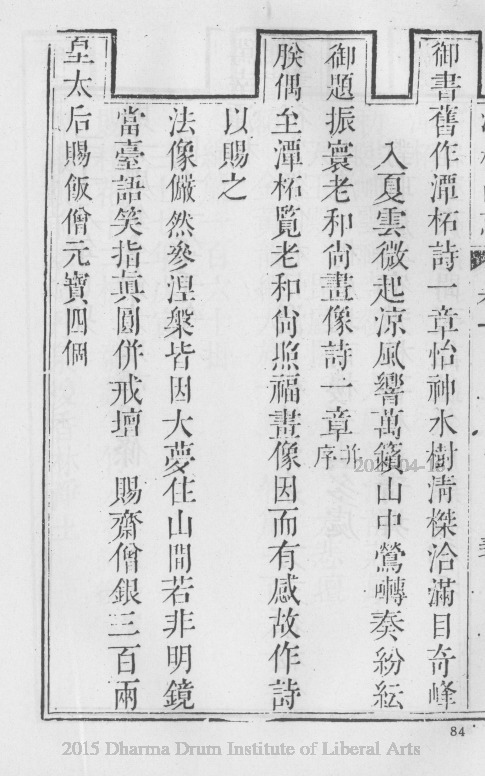 御書舊作潭柘詩一章怡神水樹清榤洽滿目奇峰
入夏雲微起涼風響萬籟山中鶯囀奏紛紜
御題振寰老和尚畫像詩一章并序
朕偶至潭柘覽老和尚照福畫像因而有感故作詩
以賜之
法像儼然參涅槃皆因大夢住山間若非明鏡
當臺語笑指真圓併戒壇 賜齋僧銀三百兩
皇太后賜飯僧元寶四個
84
2015 Dharma Drum Institute of Liberal Arts